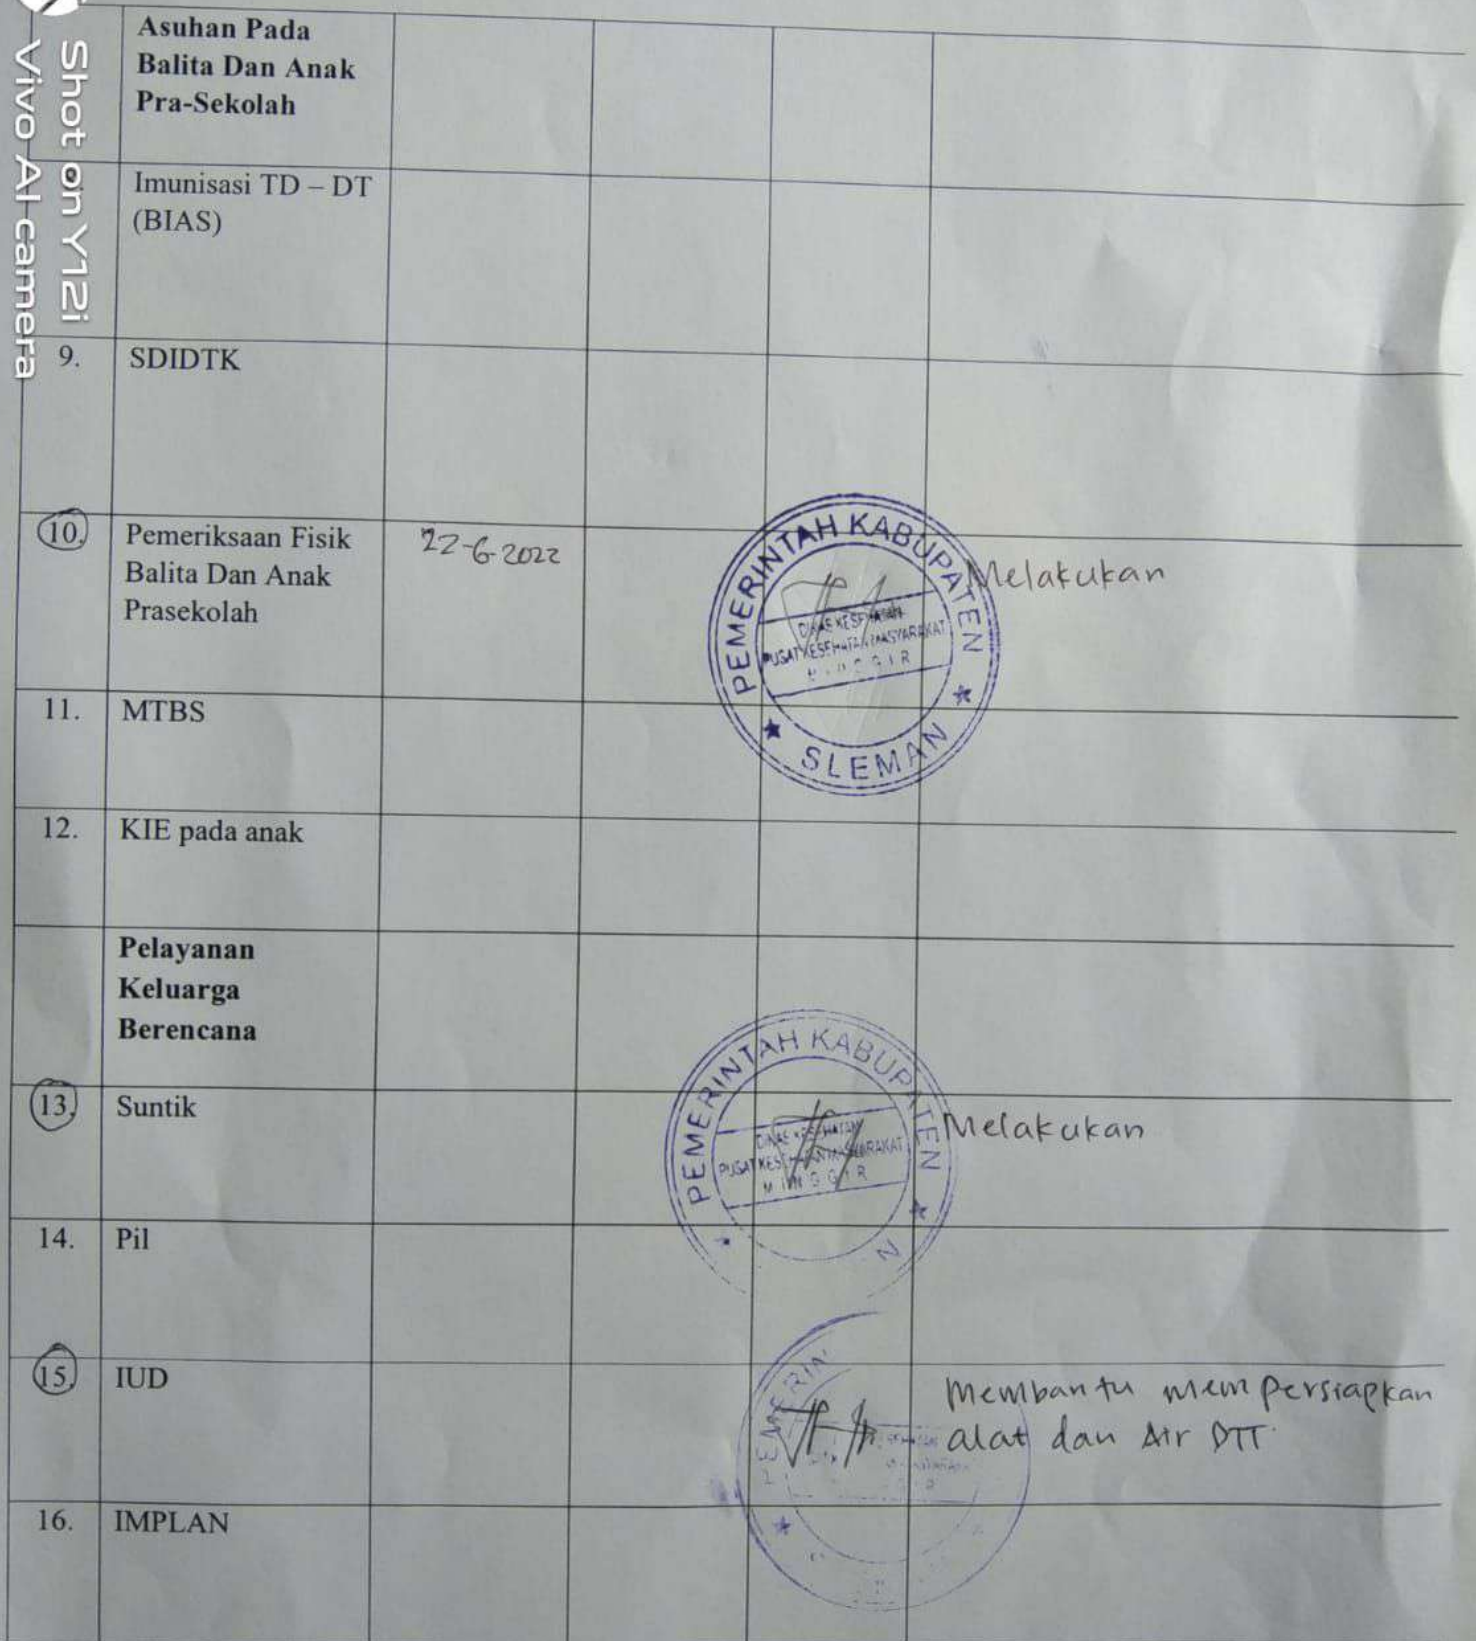 Shot on Y12i
Vivo AI camera
Asuhan Pada
Balita Dan Anak
Pra-Sekolah
Imunisasi TD – DT
(BIAS)
9. SDIDTK
10. Pemeriksaan Fisik
Balita Dan Anak
Prasekolah
22-6-2022
PEMERINTAH KABUPATEN
DINAS KESEHATAN
PUSAT KESEHATAN MASYARAKAT
MINGGIR
SLEMAN
Melakukan
11. MTBS
12. KIE pada anak
Pelayanan
Keluarga
Berencana
13. Suntik
PEMERINTAH KABUPATEN
DINAS KESEHATAN
PUSAT KESEHATAN MASYARAKAT
MINGGIR
N
Melakukan
14. Pil
15. IUD
Membantu mempersiapkan
alat dan Air DTT.
16. IMPLAN